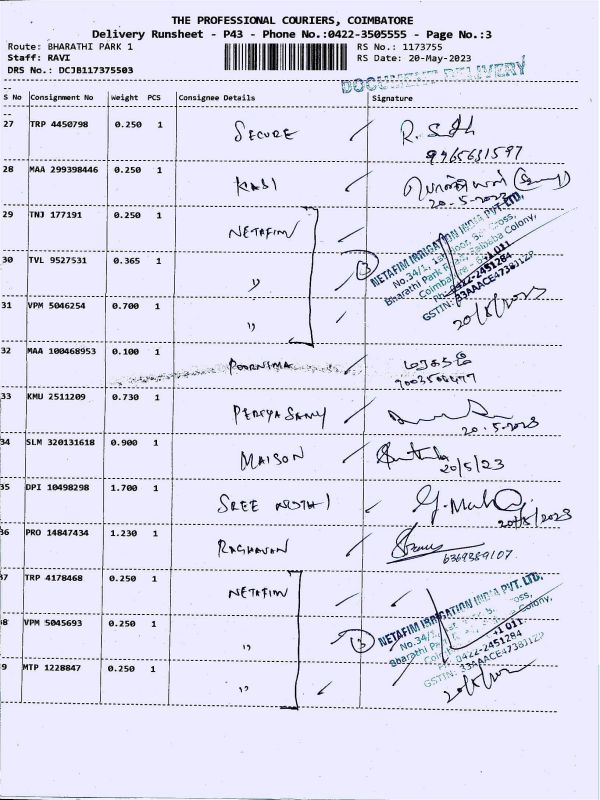 THE PROFESSIONAL COURIERS, COIMBATORE
Delivery Runsheet - P43 - Phone No.:0422-3505555 - Page No.:3
Route: BHARATHI PARK 1
RS No.: 1173755
Staff: RAVI
RS Date: 20-May-2023
DRS No.: DCJB117375503
DOCUMENT DELIVERY
S No Consignment No Weight PCS Consignee Details Signature
27 TRP 4450798 0.250 1 SECURE
9965631597
28 MAA 299398446 0.250 1 KASI
20-5-2023
29 TNJ 177191 0.250 1 NETAFIM
30 TVL 9527531 0.365 1 "
3
NETAFIM IRRIGATION INDIA PVT. LTD.
No.34/1, 1st Floor, Cross,
Bharathi Park Saibaba Colony,
Coimbatore 011
Ph: 0422-2451284
GSTIN: 33AAACE4738J1ZP
31 VPM 5046254 0.700 1 "
32 MAA 100468953 0.100 1 POORNIMA
33 KMU 2511209 0.730 1 PERIYASAMY
20-5-2023
34 SLM 320131618 0.900 1 MAISON
20/5/23
35 DPI 10498298 1.700 1 SREE
20/5/2023
36 PRO 14847434 1.230 1 RAGHAVAN
6369389107
37 TRP 4178468 0.250 1 NETAFIM
38 VPM 5045693 0.250 1 "
3
NETAFIM IRRIGATION INDIA PVT. LTD.
No.34/
Bharathi Colony,
011
0422-2451284
GSTIN: 33AAACE4738J1ZP
39 MTP 1228847 0.250 1 "